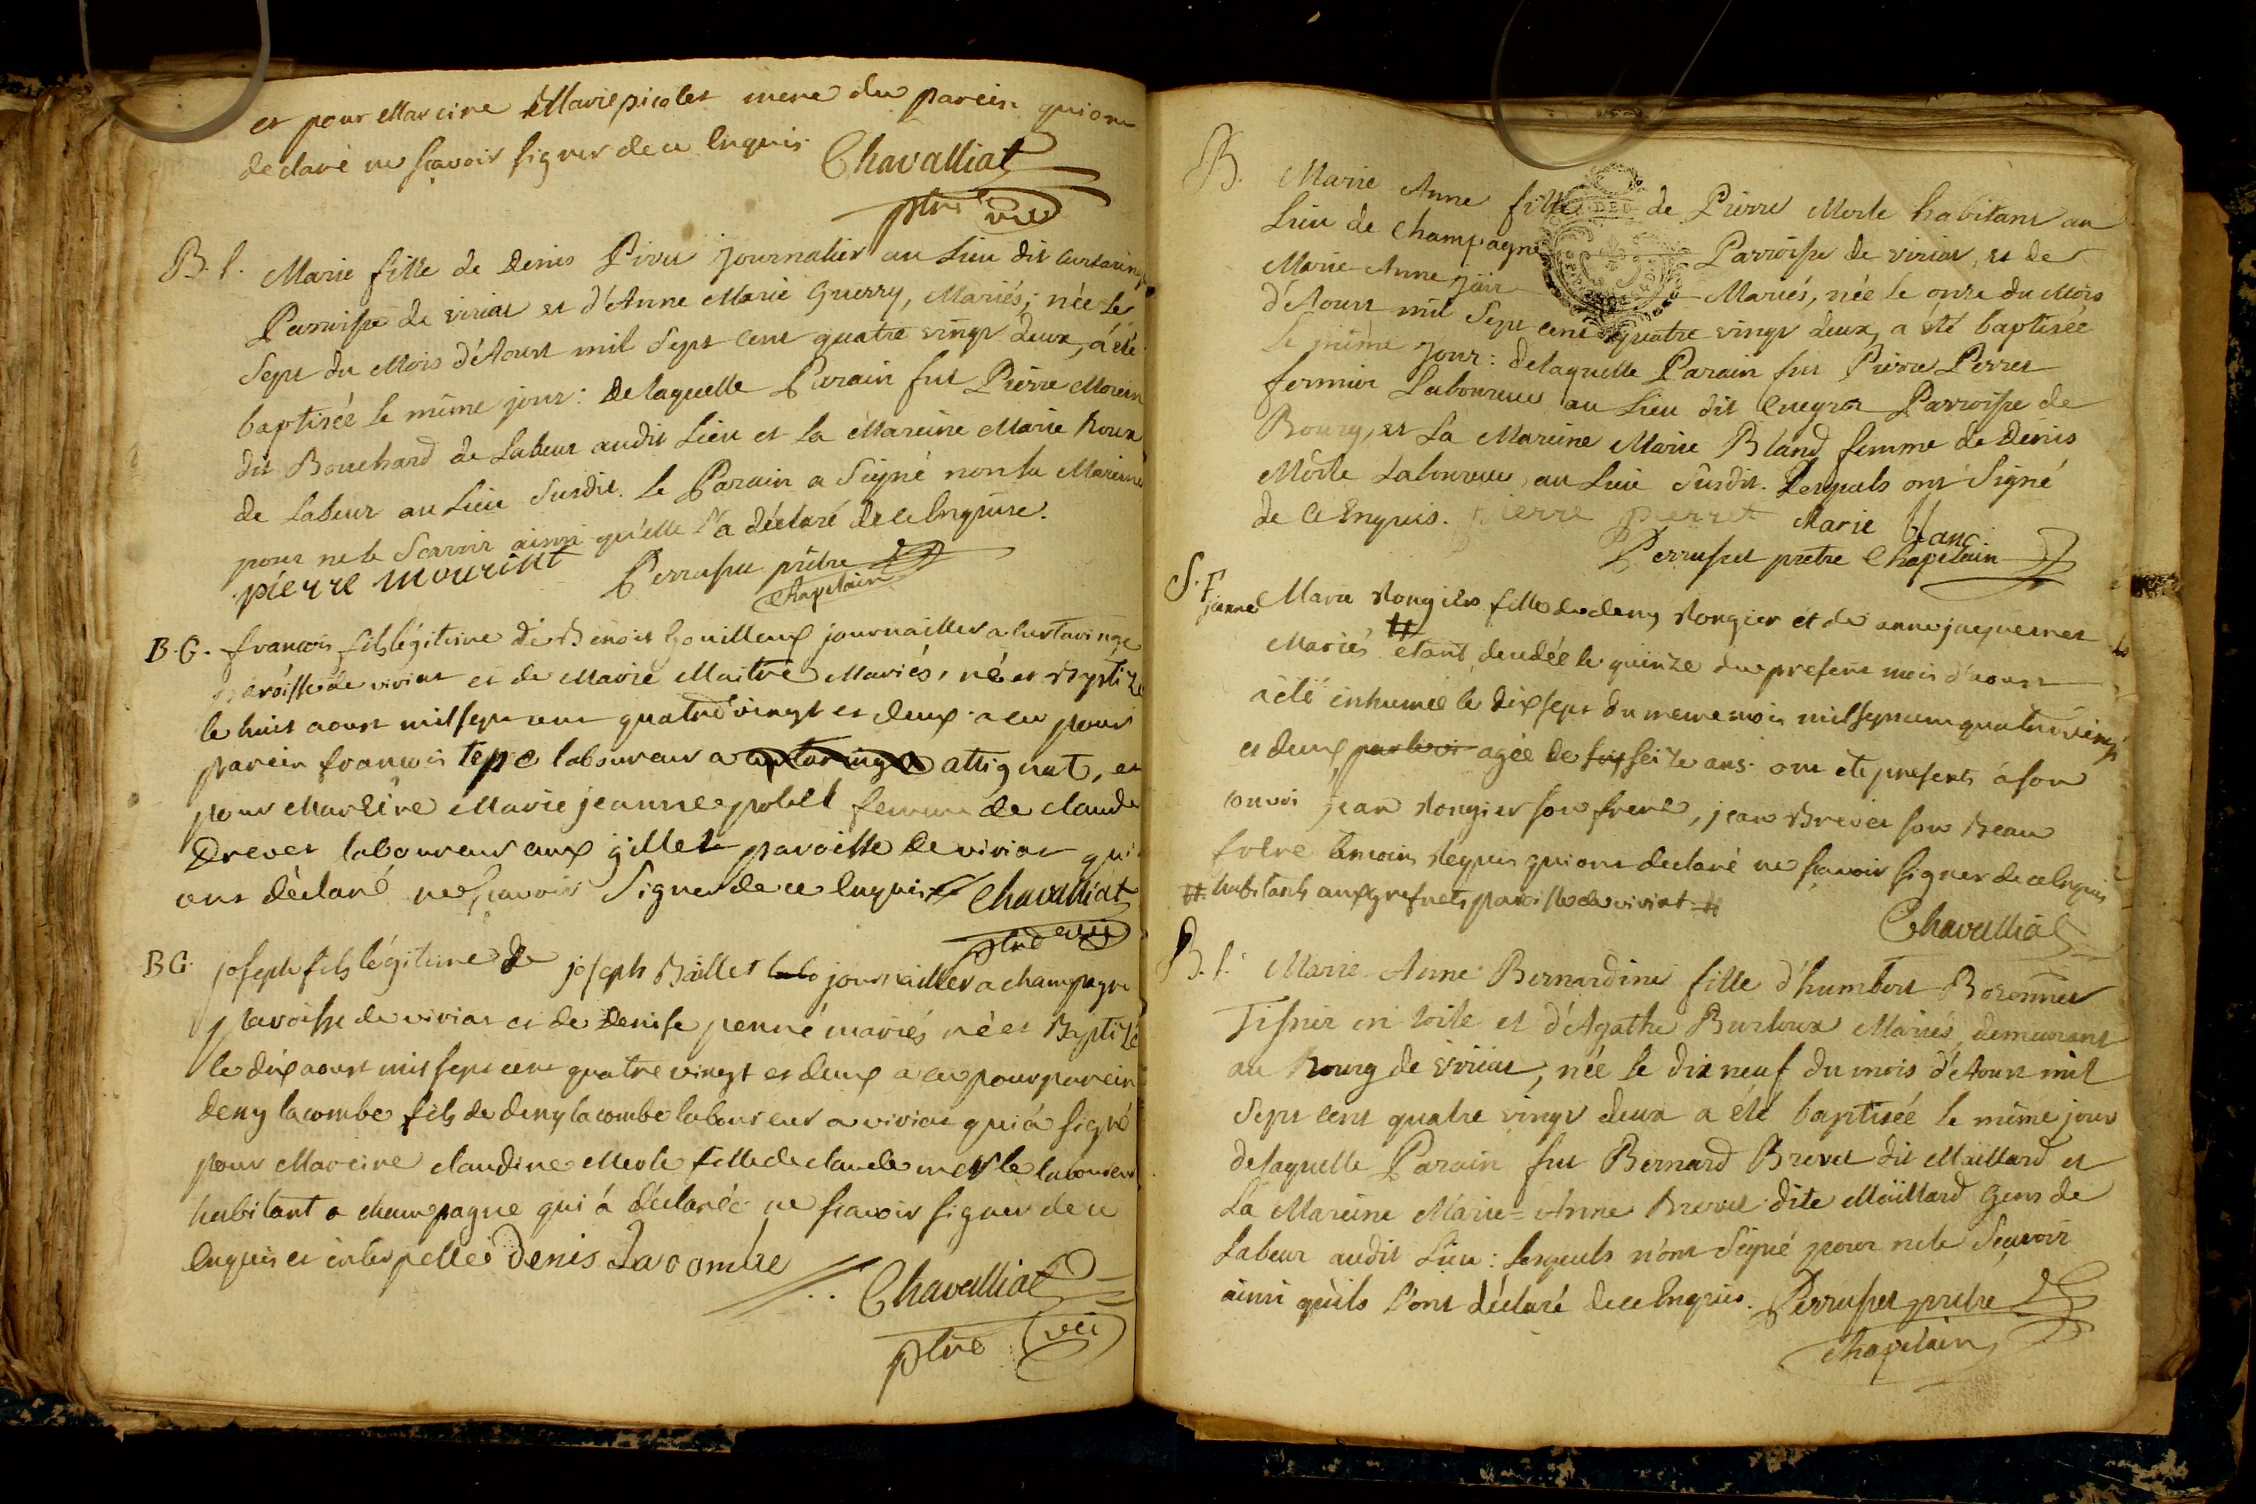 et pour Mareine Marie picolet mere du parein qui ont
declaré ne sçavoir signer de ce enquis
Chavalliat
ptre vic
B. f. Marie fille de Denis Pivet journalier au Lieu dit
Parroisse de viriat et d'Anne Marie Guerry, Mariés; née le
Sept du Mois d'Aoust mil Sept Cent quatre vingt deux, a été
baptisée le même jour: de laquelle Parain fut Pierre Morein
dit Bouchard de Labeur audit Lieu et La Mareine Marie Roux
de Labeur au Lieu Susdit. Le Parain a Signé non la Mareine
pour ne le Scavoir ainsi qu'elle l'a déclaré de ce Enquise.
pierre mourint
Perruset prêtre
Chapelain
B. G. francois fils légitime de Benoit Gouilleux journaillier a
paroisse de viriat et de Marie Maitre Mariés, né et Baptizé
le huit aoust mil sept cent quatre vingt et deux a eu pour
parein francois tepe laboureur a attignat, et
pour Mareine Marie jeanne pobel femme de claude
Brevet laboureur aux gillet paroisse de viriat qui
ont déclaré ne sçavoir Signer de ce enquis Chavalliat
ptre vic
B G. joseph fils légitime de joseph Baillet journaillier a champagne
paroisse de viriat et de Denise penné mariés né et Baptizé
le dix aoust mil sept cent quatre vingt et deux a eu pour parein
deny lacombe fils de deny lacombe laboureur a viriat qui a signé
pour Mareine claudine Merle fille de claude merle laboureur
habitant a champagne qui a déclarée ne scavoir signer de ce
enquis et interpellé Denis Lacombe
Chavalliat
ptre vic
B. Marie Anne fille de Pierre Morle habitant au
Lieu de Champagne Parroisse de viriat, et de
Marie Anne Mariés, née le onze du Mois
d'Aoust mil Sept cent quatre vingt deux, a été baptisée
le même jour: de laquelle Parain fut Pierre Perret
fermier Laboureur au Lieu dit Parroisse de
Bourg, et La Mareine Marie Bland femme de Denis
Morle Laboureur au Lieu Susdit. Lesquels ont Signé
de ce Enquis. Pierre Perret Marie blanc
Perruset prêtre Chapelain
S. F. jeanne Marie Rongier fille de deny Rongier et de anne jaquemet
Mariés # étant decedée le quinze du present mois d'aoust
a été inhumée le dix sept du meme mois mil sept cent quatre vingt
et deux agée de seize ans ont été presents a son
convoi jean Rongier son frere, jean Brevet son Beau
frere temoins requis qui ont declaré ne scavoir signer de ce enquis
# habitants aux greffets paroisse de viriat #
Chavalliat
B. f. Marie Anne Bernardine fille d'humbert Bozonnet
Tissier en toile et d'Agathe Burtoux Mariés demeurant
au Bourg de viriat, née le dix neuf du mois d'Aoust mil
Sept cent quatre vingt deux a été baptisée le même jour
de laquelle Parain fut Bernard Brevet dit Maillard et
La Mareine Marie = Anne Brevet dite Maillard Gens de
Labeur audit Lieu: Lesquels n'ont Signé pour ne le Sçavoir
ainsi qu'ils l'ont déclaré de ce Enquis. Perruset prêtre
Chapelain